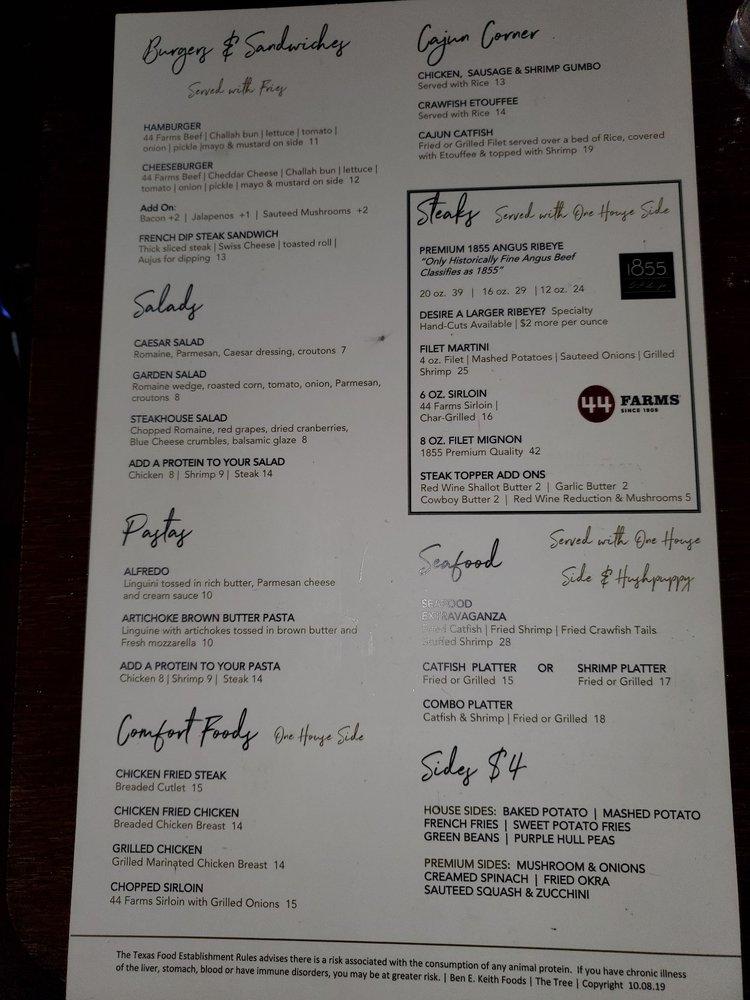 Burgers & Sandwiches
Served with Fries
HAMBURGER
44 Farms Beef | Challah bun | lettuce | tomato |
onion | pickle |mayo & mustard on side 11
CHEESEBURGER
44 Farms Beef | Cheddar Cheese | Challah bun | lettuce |
tomato | onion | pickle | mayo & mustard on side 12
Add On:
Bacon +2 | Jalapenos +1 | Sauteed Mushrooms +2
FRENCH DIP STEAK SANDWICH
Thick sliced steak | Swiss Cheese | toasted roll |
Aujus for dipping 13
Salads
CAESAR SALAD
Romaine, Parmesan, Caesar dressing, croutons 7
GARDEN SALAD
Romaine wedge, roasted corn, tomato, onion, Parmesan,
croutons 8
STEAKHOUSE SALAD
Chopped Romaine, red grapes, dried cranberries,
Blue Cheese crumbles, balsamic glaze 8
ADD A PROTEIN TO YOUR SALAD
Chicken 8 | Shrimp 9 | Steak 14
Pastas
ALFREDO
Linguini tossed in rich butter, Parmesan cheese
and cream sauce 10
ARTICHOKE BROWN BUTTER PASTA
Linguine with artichokes tossed in brown butter and
Fresh mozzarella 10
ADD A PROTEIN TO YOUR PASTA
Chicken 8 | Shrimp 9 | Steak 14
Comfort Foods One House Side
CHICKEN FRIED STEAK
Breaded Cutlet 15
CHICKEN FRIED CHICKEN
Breaded Chicken Breast 14
GRILLED CHICKEN
Grilled Marinated Chicken Breast 14
CHOPPED SIRLOIN
44 Farms Sirloin with Grilled Onions 15
Cajun Corner
CHICKEN, SAUSAGE & SHRIMP GUMBO
Served with Rice 13
CRAWFISH ETOUFFEE
Served with Rice 14
CAJUN CATFISH
Fried or Grilled Filet served over a bed of Rice, covered
with Etouffee & topped with Shrimp 19
Steaks Served with One House Side
PREMIUM 1855 ANGUS RIBEYE
"Only Historically Fine Angus Beef
Classifies as 1855"
1855
20 oz. 39 | 16 oz. 29 | 12 oz. 24
DESIRE A LARGER RIBEYE? Specialty
Hand-Cuts Available | $2 more per ounce
FILET MARTINI
4 oz. Filet | Mashed Potatoes | Sauteed Onions | Grilled
Shrimp 25
6 OZ. SIRLOIN
44 Farms Sirloin |
Char-Grilled 16
44 FARMS
SINCE 1909
8 OZ. FILET MIGNON
1855 Premium Quality 42
STEAK TOPPER ADD ONS
Red Wine Shallot Butter 2 | Garlic Butter 2
Cowboy Butter 2 | Red Wine Reduction & Mushrooms 5
Seafood Served with One House
Side & Hushpuppy
SEAFOOD
EXTRAVAGANZA
Fried Catfish | Fried Shrimp | Fried Crawfish Tails
Stuffed Shrimp 28
CATFISH PLATTER OR SHRIMP PLATTER
Fried or Grilled 15 Fried or Grilled 17
COMBO PLATTER
Catfish & Shrimp | Fried or Grilled 18
Sides $4
HOUSE SIDES: BAKED POTATO | MASHED POTATO
FRENCH FRIES | SWEET POTATO FRIES
GREEN BEANS | PURPLE HULL PEAS
PREMIUM SIDES: MUSHROOM & ONIONS
CREAMED SPINACH | FRIED OKRA
SAUTEED SQUASH & ZUCCHINI
The Texas Food Establishment Rules advises there is a risk associated with the consumption of any animal protein. If you have chronic illness
of the liver, stomach, blood or have immune disorders, you may be at greater risk. | Ben E. Keith Foods | The Tree | Copyright 10.08.19